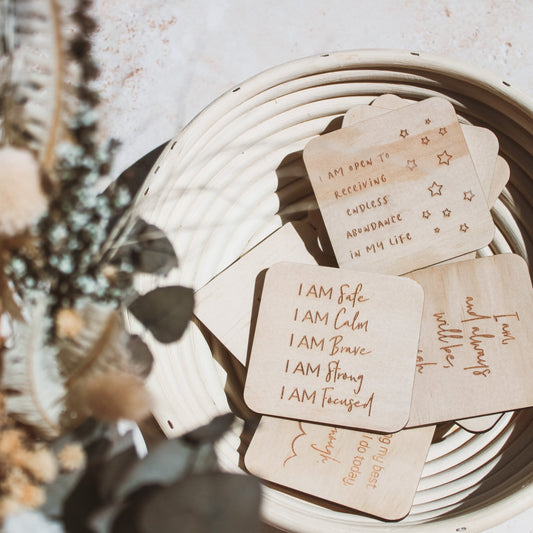 I AM OPEN TO
RECEIVING
ENDLESS
ABUNDANCE
IN MY LIFE
I AM Safe
I AM Calm
I AM Brave
I AM Strong
I AM Focused
I am,
and always
will be,
my best
I do today